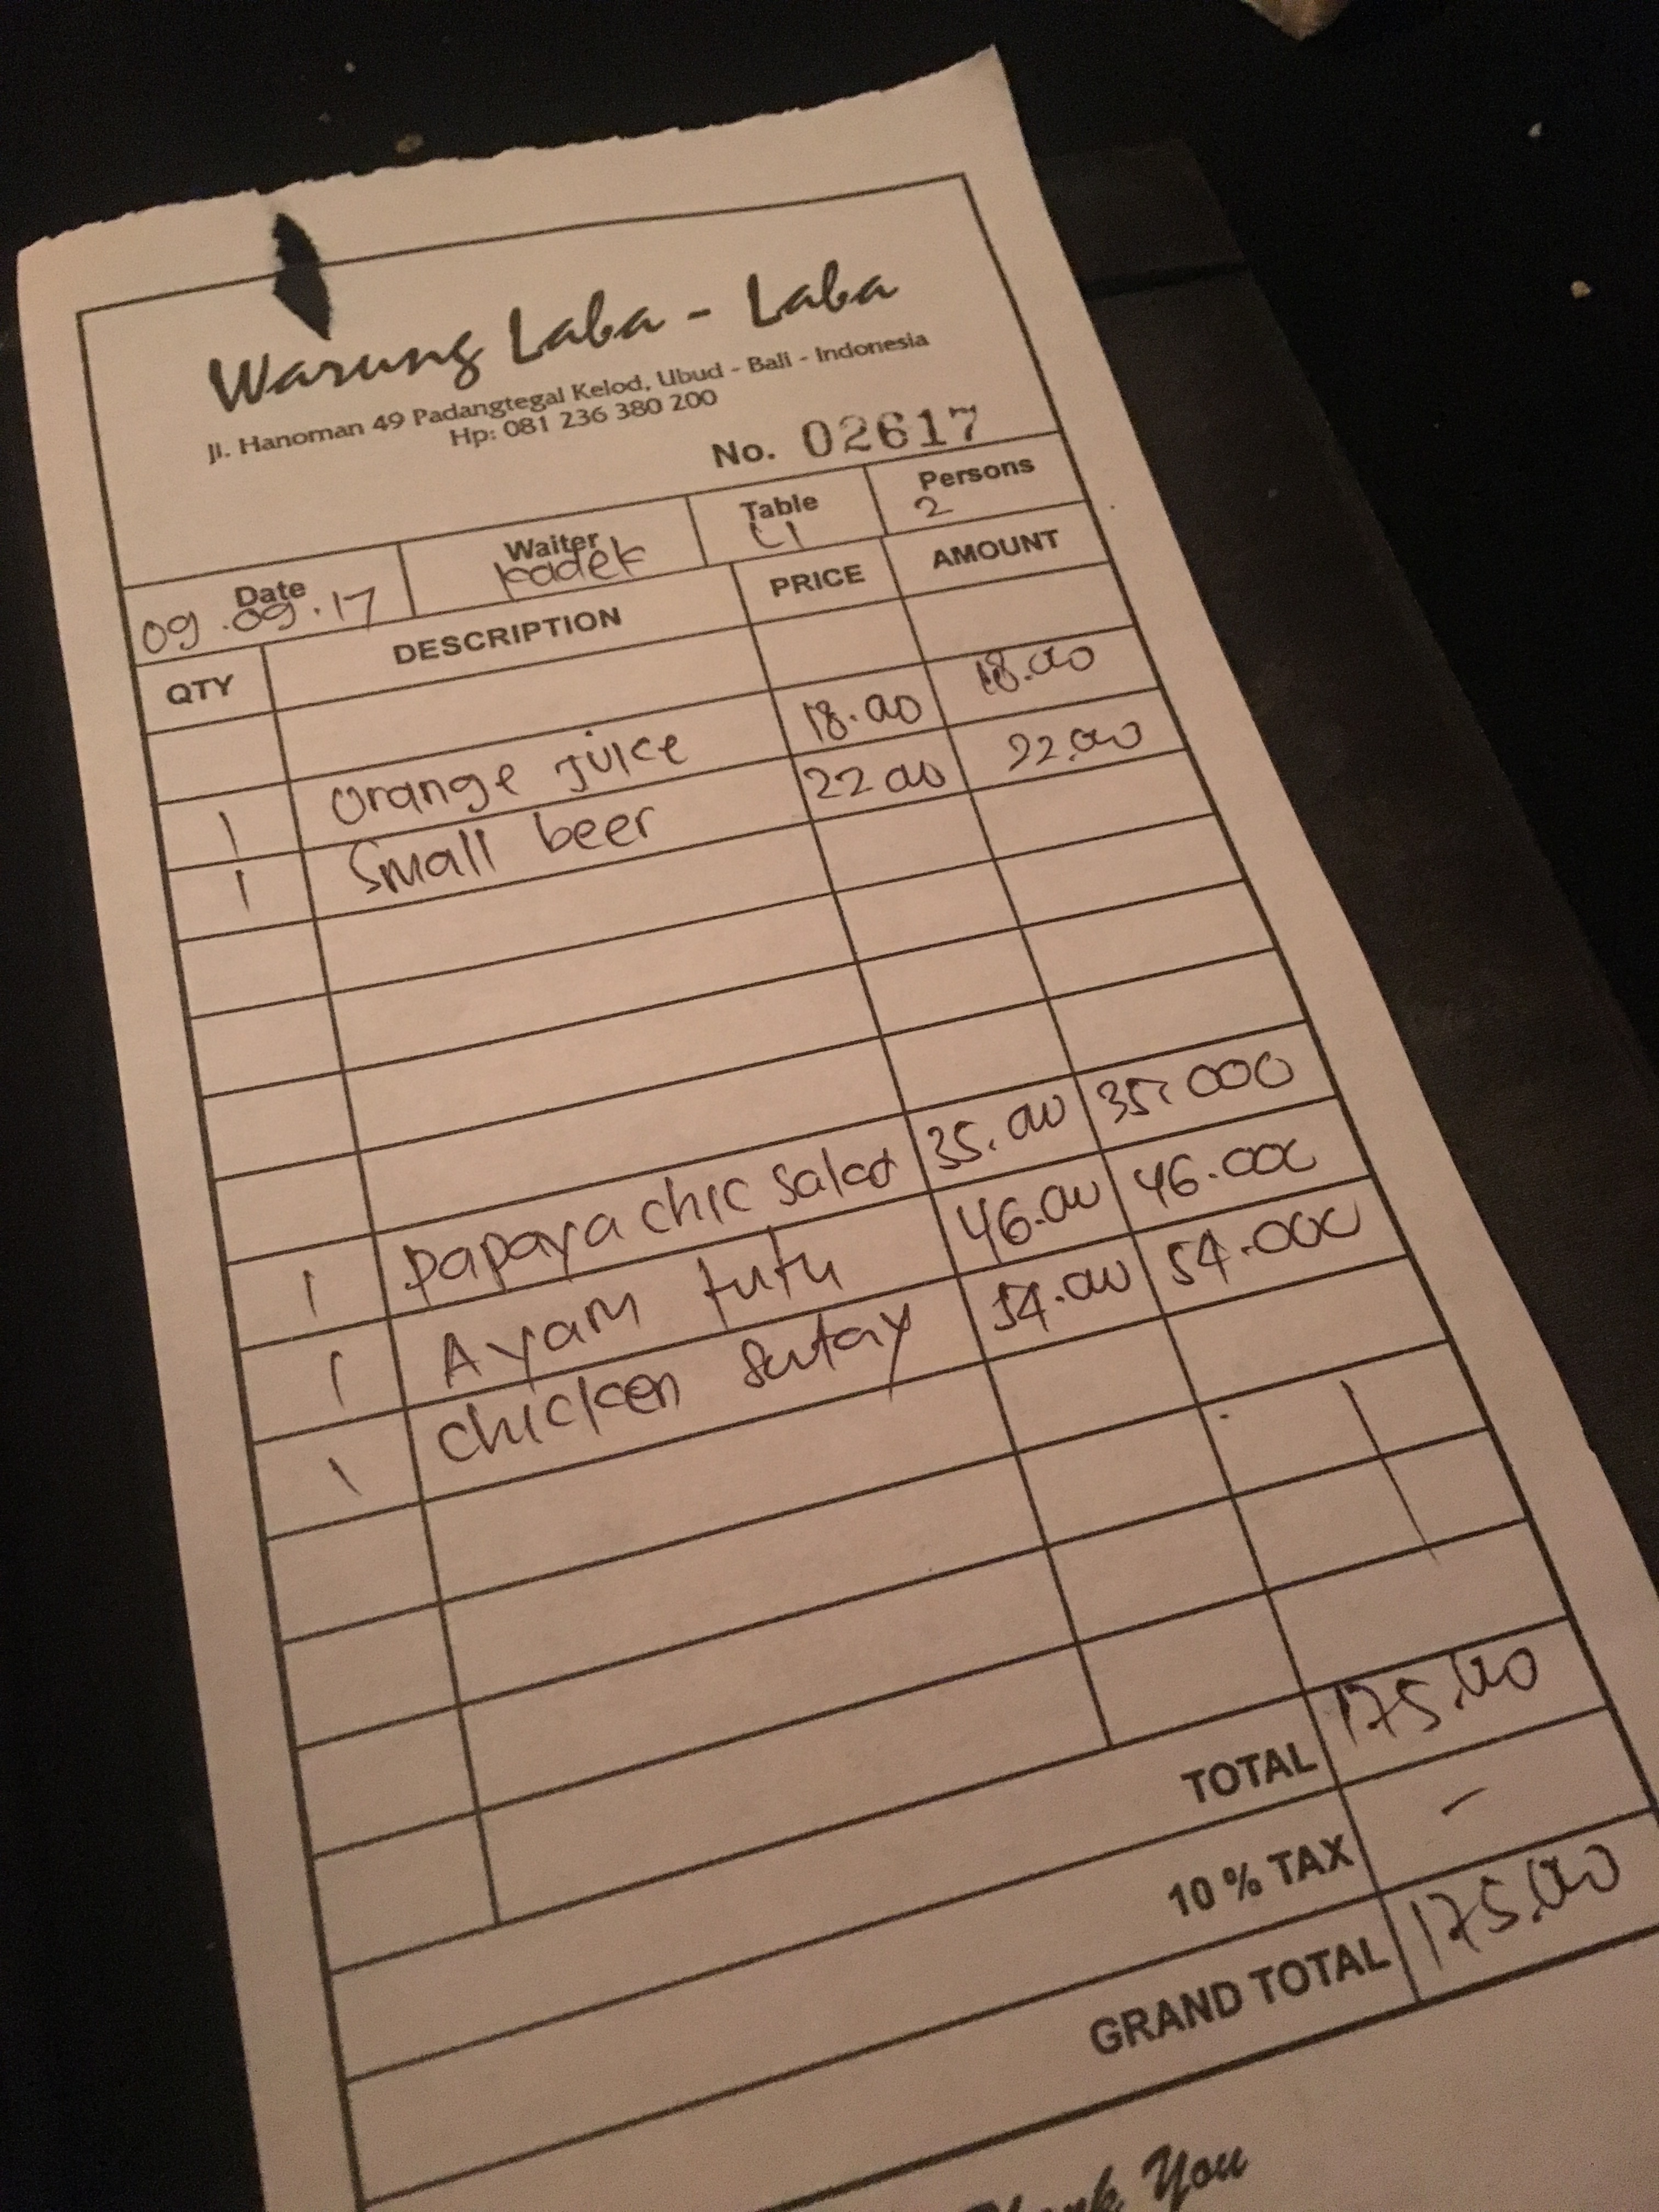 Warung Laba - Laba
Jl. Hanoman 49 Padangtegal Kelod, Ubud - Bali - Indonesia
Hp: 081 236 380 200
No. 02617
Date Waiter Table Persons
09.09.17 Kadek 2
QTY DESCRIPTION PRICE AMOUNT
1 Orange juice 18.000 18.000
1 Small beer 22.000 22.000
1 papaya chic salad 35.000 35.000
1 Ayam tutu 46.000 46.000
1 chicken satay 54.000 54.000
TOTAL 175.000
10 % TAX -
GRAND TOTAL 175.000
You